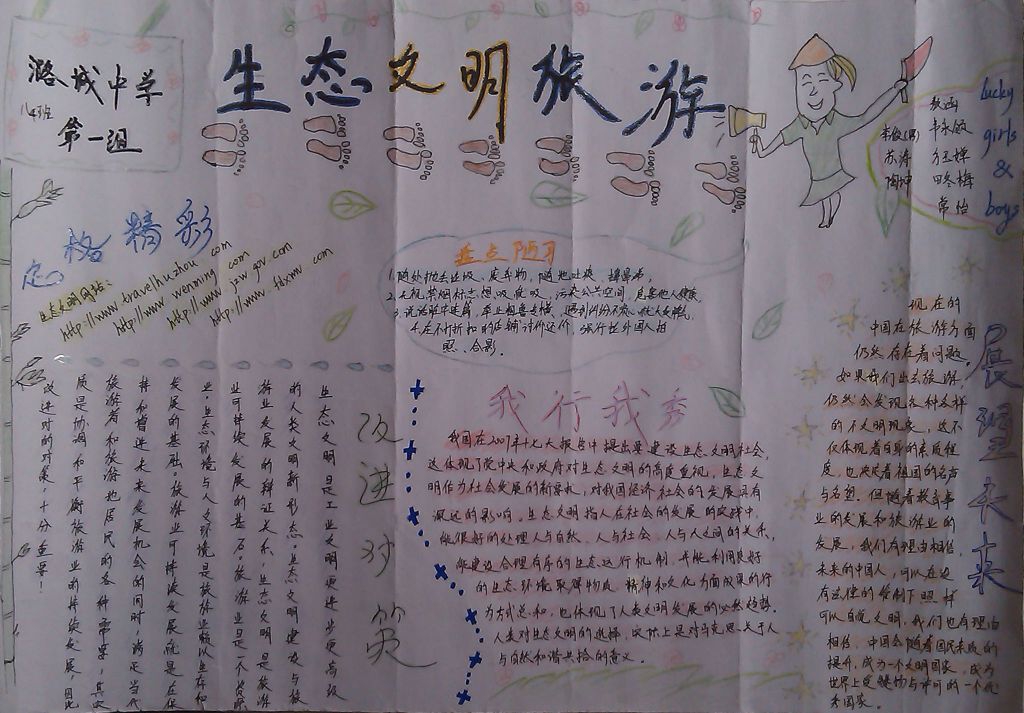 潞城中学
第一组
生态文明旅游
lucky
girls
&
boys
苏涛
常怡
定格精彩
生态文明网站:
http://www.travelhuzhou.com
http://www.wenming.com
http://www.jsw.gov.com
http://www.fdxmw.com
盘点陋习
1.随处抛丢垃圾、废弃物,随地吐痰、擤鼻涕,
2.无视禁烟标志想吸就吸,污染公共空间,危害他人健康
4.在不打折扣的店铺讨价还价,强行拉外国人拍
照、合影。
改进对策
生态文明是工业文明更进步更高级
的人类文明新形态。生态文明建设与旅
游业发展的辩证关系,生态文明是旅游
业可持续发展的基石,旅游业是不
业,生态环境与人文环境是旅游业赖以生存和
发展的基础,旅游业可持续发展就是在保
持和增进未来发展机会的同时,满足当代
旅游者和旅游地居民的各种需要,其实
质是协调和平衡旅游业的持续发展,因此
改进对策,十分重要!
我行我秀
我国在2007年十七大报告中提出要建设生态文明社会,
这体现了党中央和政府对生态文明的高度重视,生态文
明作为社会发展的新要求,对我国经济社会的发展具有
深远的影响,生态文明指人在社会的发展的实践中,
能很好的处理人与自然、人与社会、人与人之间的关系,
能建设合理有序的生态运行机制,并能利用良好
的生态环境取得物质、精神和文化方面成果的行
为方式总和,也体现了人类文明发展的必然趋势,
人类对生态文明的选择,实际上是对马克思关于人
与自然和谐共拾的意义。
展望未来
现在的
中国在旅游方面
仍然存在着问题。
如果我们出去旅游,
仍然会发现各种各样
的不文明现象,这不
仅体现着自身的素质程
度,也决定着祖国的名声
与名望。但随着教育事
业的发展和旅游业的
发展,我们有理由相信,
未来的中国人,可以在没
有法律的管制下照样
可以自觉文明,我们也有理由
相信,中国会随着国民素质的
提升,成为一个文明国家,成为
世界上受赞扬与许可的一个优
秀国家。